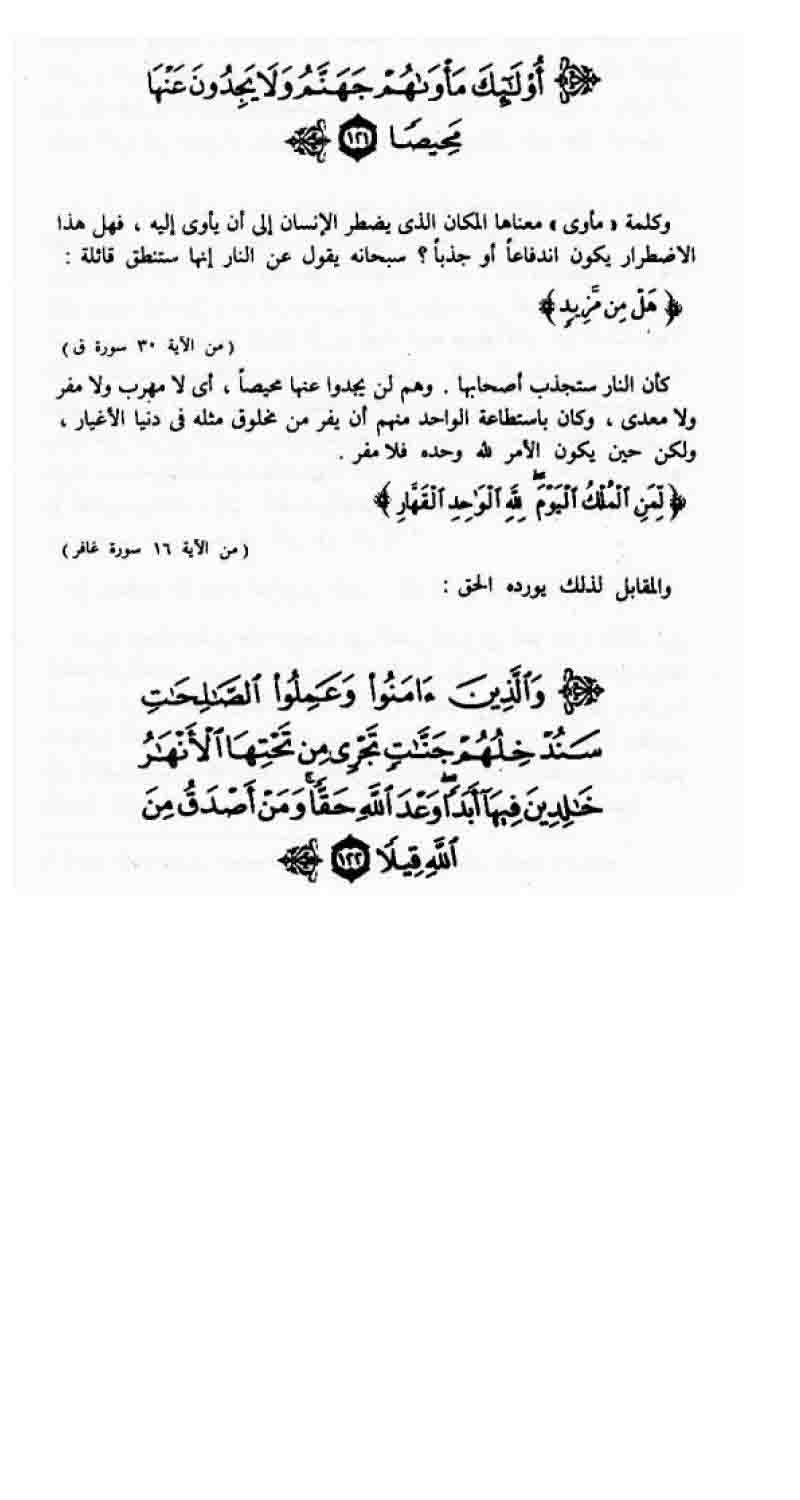 أُوْلَٰٓئِكَ مَأْوَىٰهُمْ جَهَنَّمُ وَلَا يَجِدُونَ عَنْهَا
مَحِيصًا ١٢١
وكلمة « مأوى » معناها المكان الذى يضطر الإنسان إلى أن يأوى إليه ، فهل هذا
الاضطرار يكون اندفاعاً أو جذباً ؟ سبحانه يقول عن النار إنها ستنطق قائلة :
﴿ هَلْ مِن مَّزِيدٍ ﴾
( من الآية ٣٠ سورة ق )
كأن النار ستجذب أصحابها . وهم لن يجدوا عنها محيصاً ، أى لا مهرب ولا مفر
ولا معدى ، وكان باستطاعة الواحد منهم أن يفر من مخلوق مثله فى دنيا الأغيار ،
ولكن حين يكون الأمر لله وحده فلا مفر .
﴿ لِّمَنِ ٱلْمُلْكُ ٱلْيَوْمَ ۖ لِلَّهِ ٱلْوَٰحِدِ ٱلْقَهَّارِ ﴾
( من الآية ١٦ سورة غافر )
والمقابل لذلك يورده الحق :
وَٱلَّذِينَ ءَامَنُوا۟ وَعَمِلُوا۟ ٱلصَّٰلِحَٰتِ
سَنُدْخِلُهُمْ جَنَّٰتٍ تَجْرِى مِن تَحْتِهَا ٱلْأَنْهَٰرُ
خَٰلِدِينَ فِيهَآ أَبَدًا ۖ وَعْدَ ٱللَّهِ حَقًّا ۚ وَمَنْ أَصْدَقُ مِنَ
ٱللَّهِ قِيلًا ١٢٢